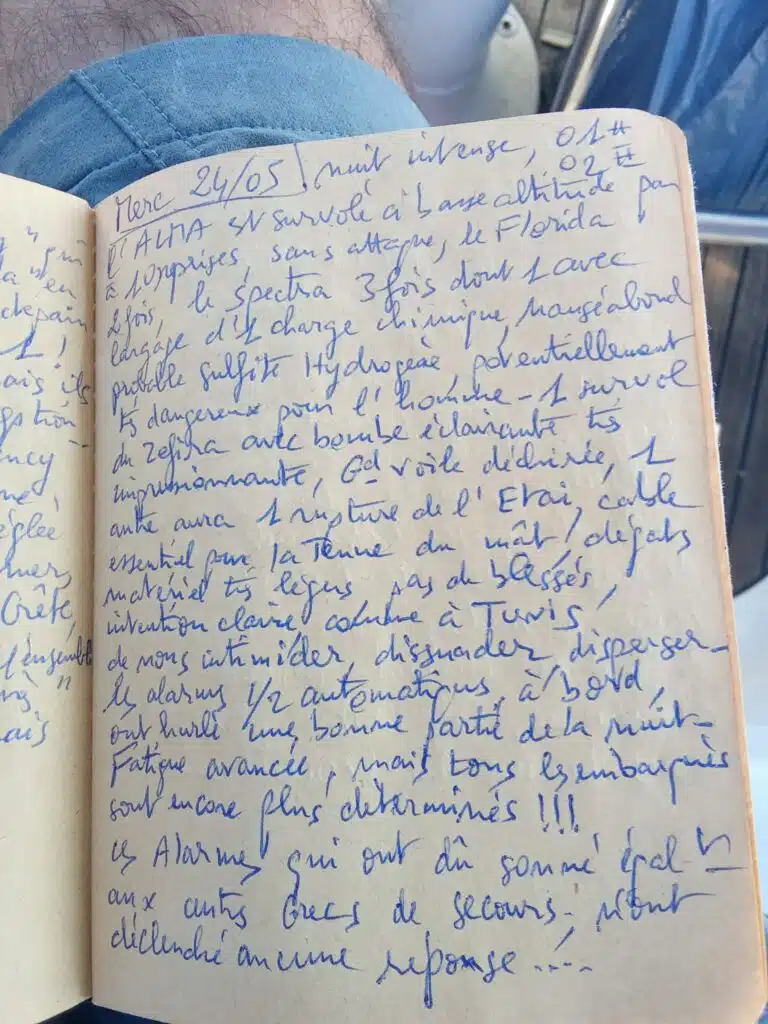 " qui
a "en
depain
1 !
ais ils
ncy
né
églée
mer,
Crête,
l'ensemble
ais
Merc 24/05 ! nuit intense, 01#
02#
l'ALMA est survolé à basse altitude par
à 10 reprises, sans attaque, le Florida
2 fois, le Spectra 3 fois dont 1 avec
largage d'1 charge chimique, nauséabond
probable Sulfite Hydrogéné, potentiellement
ts dangereux pour l'homme - 1 survol
du Zefira avec bombe éclairante ts
impressionnante, Gd voile déchirée, 1
autre aura 1 rupture de l'Etai, cable
essentiel pour la Tenue du mât, dégats
matériel ts légers pas de blessés,
intention claire comme à Tunis,
de nous intimider, dissuader disperser -
les alarmes 1/2 automatiques, à bord,
ont hurlé une bonne partie de la nuit -
Fatigue avancée, mais tous les embarqués
sont encore plus déterminés !!!
ces Alarmes qui ont dû sonné égalt
aux autres Grecs de secours - n'ont
déclenché aucune réponse .....